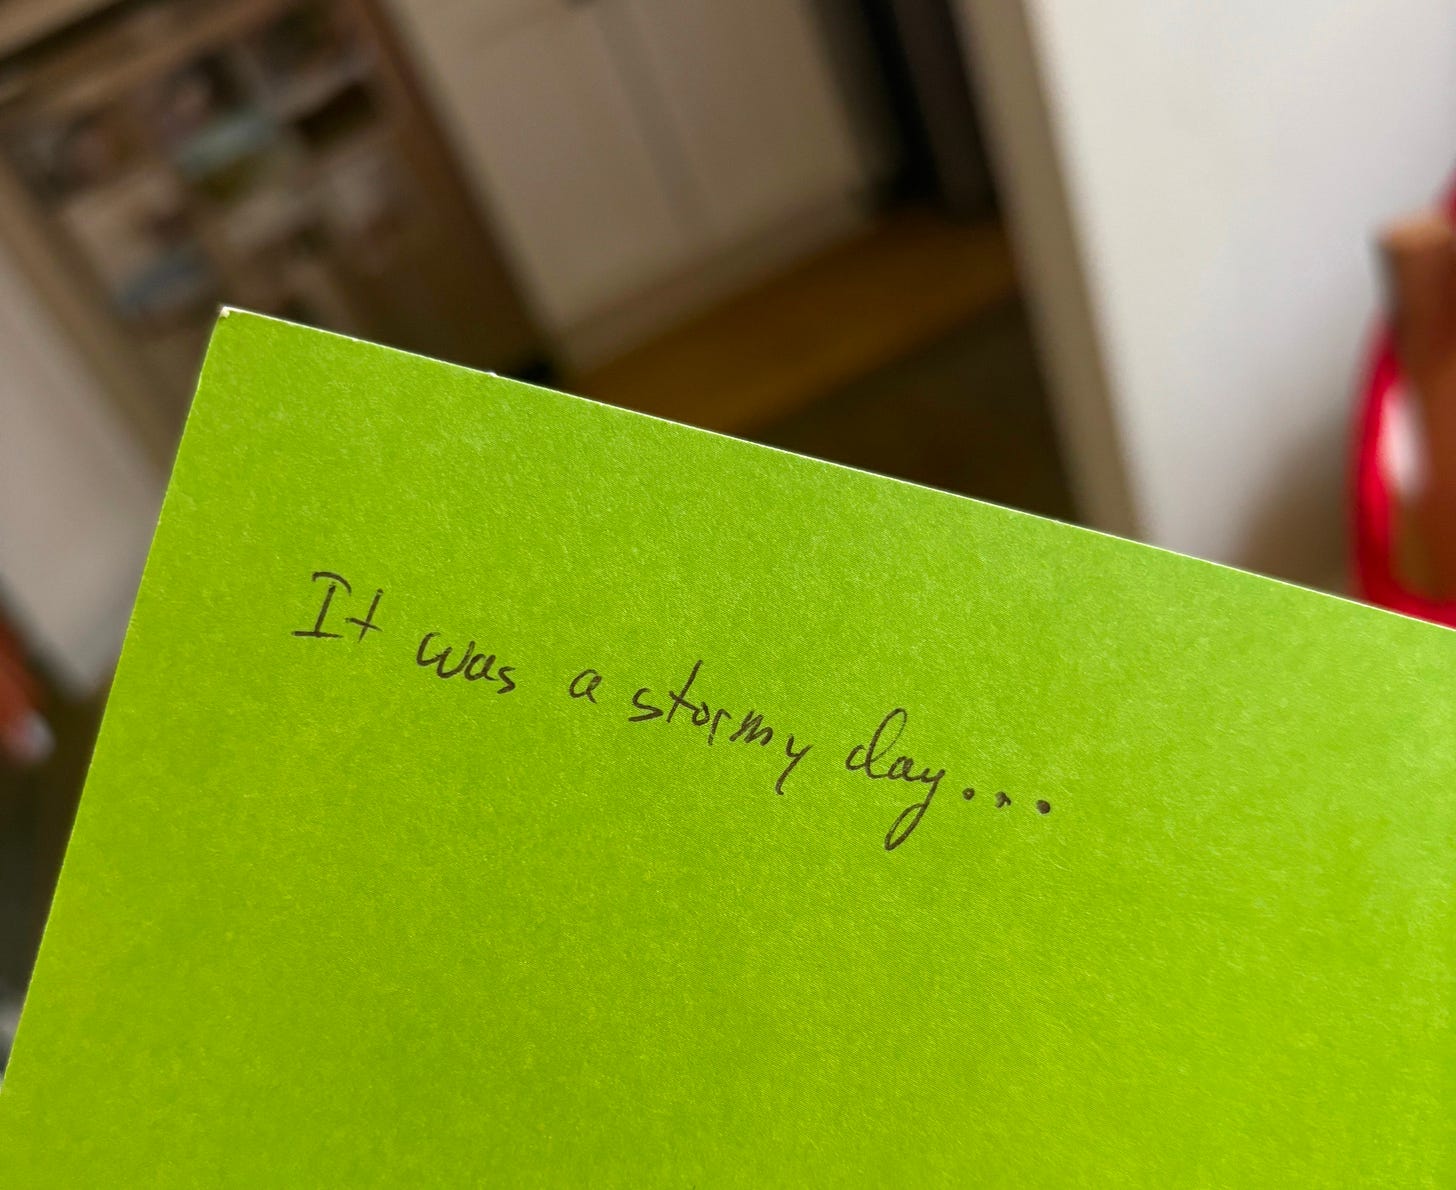 It was a stormy day...